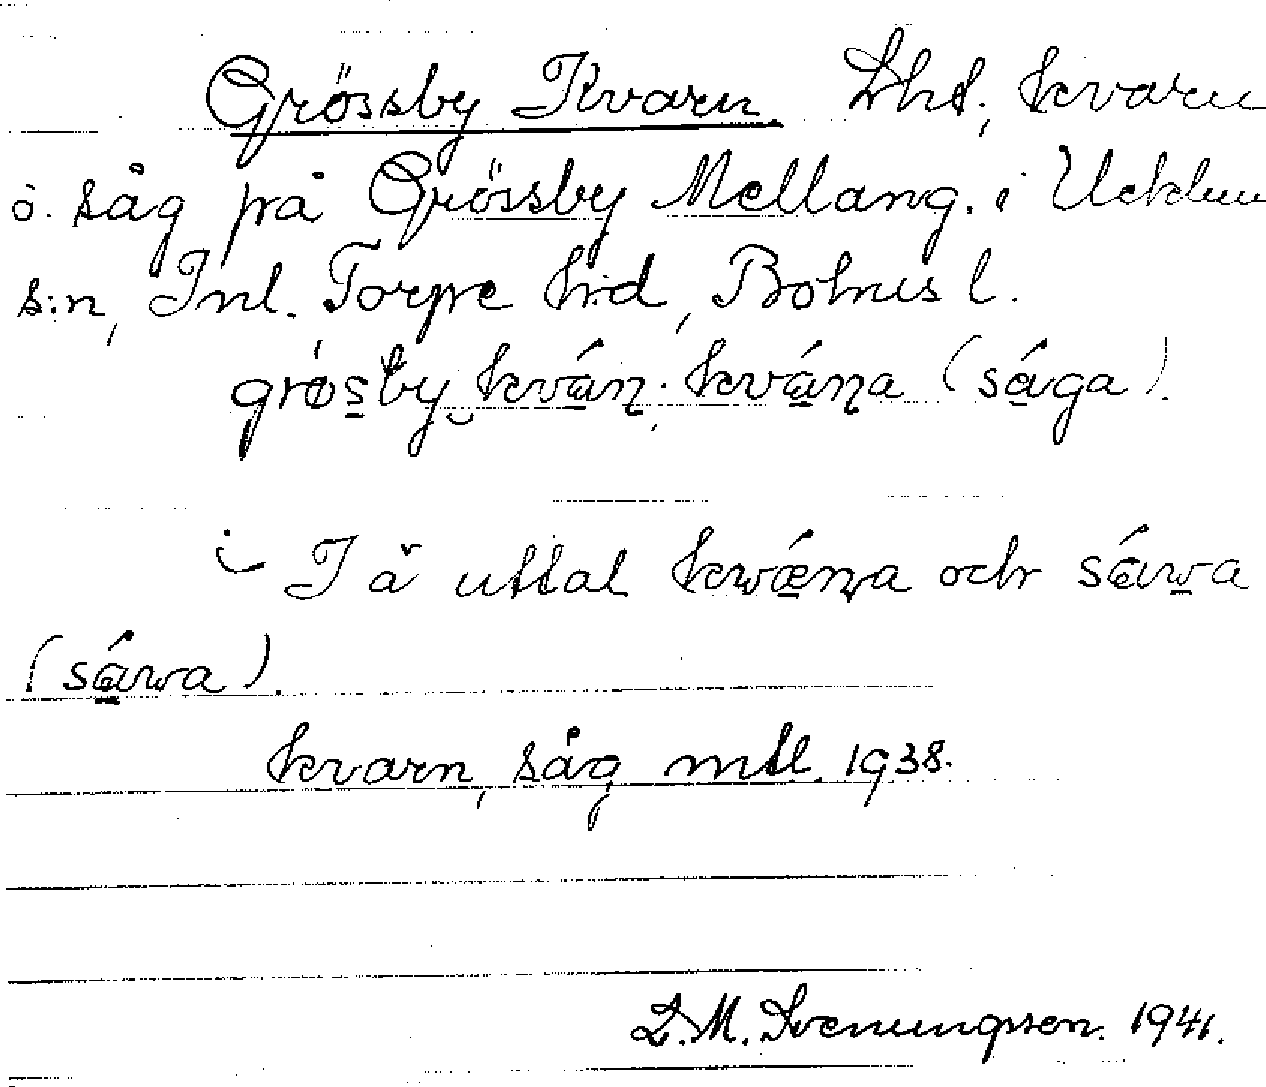 Grössby Kvarn. Lht, kvarn
o. såg på Grössby Mellang. i Ucklum
s:n, Inl. Torpe hrd, Bohus l.
grǿsby kván; kvána (sága).
I ä uttal kwǽna och sáwa
(sáwa).
kvarn, såg mtl. 1938.
D.M. Svenungsson. 1941.